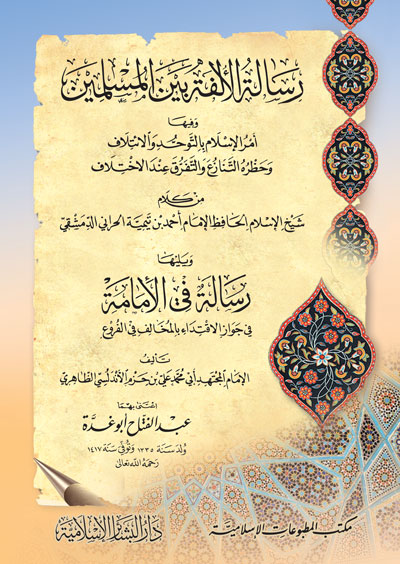 رسالة الألفة بين المسلمين
وفيها
أمر الإسلام بالتوحد والائتلاف
وحظره التنازع والتفرق عند الاختلاف
من كلام
شيخ الإسلام الحافظ الإمام أحمد بن تيمية الحراني الدمشقي
ويليها
رسالة في الإمامة
في جواز الاقتداء بالمخالف في الفروع
تأليف
الإمام المجتهد أبي محمد علي بن حزم الأندلسي الظاهري
اعتنى بهما
عبد الفتاح أبو غدة
ولد سنة ١٣٣٥ وتوفي سنة ١٤١٧
رحمه الله تعالى
مكتب المطبوعات الإسلامية
دار البشائر الإسلامية